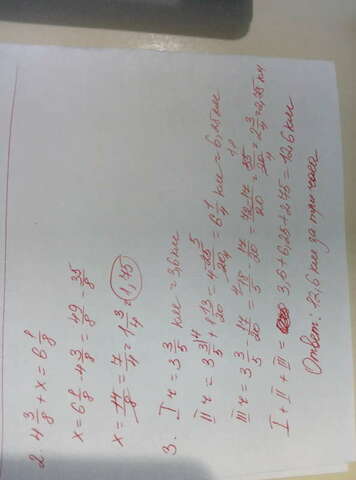 2. 4 3/8 + x = 6 1/8
x = 6 1/8 - 4 3/8 = 49/8 - 35/8
x = 14/8 = 7/4 = 1 3/4 = 1,75
3. I ч = 3 3/5 км = 3,6 км
II ч = 3 3/5 + 2 13/20 = 6 1/4 км = 6,25 км
III ч = 3 3/5 - 17/20 = 18/5 - 17/20 = 72-17/20 = 55/20 = 2 3/4 = 2,75 км
I + II + III = 3,6 + 6,25 + 2,75 = 12,6 км
Ответ: 12,6 км за три часа